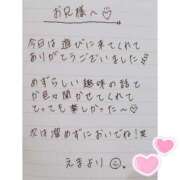 お兄様へ♡
今日は遊びに来てくれて
ありがとうございました
めずらしい趣味の話と
か色々聞かせてくれて
とっても楽しかった〜
次は溜めずにおいでね!笑
えまより